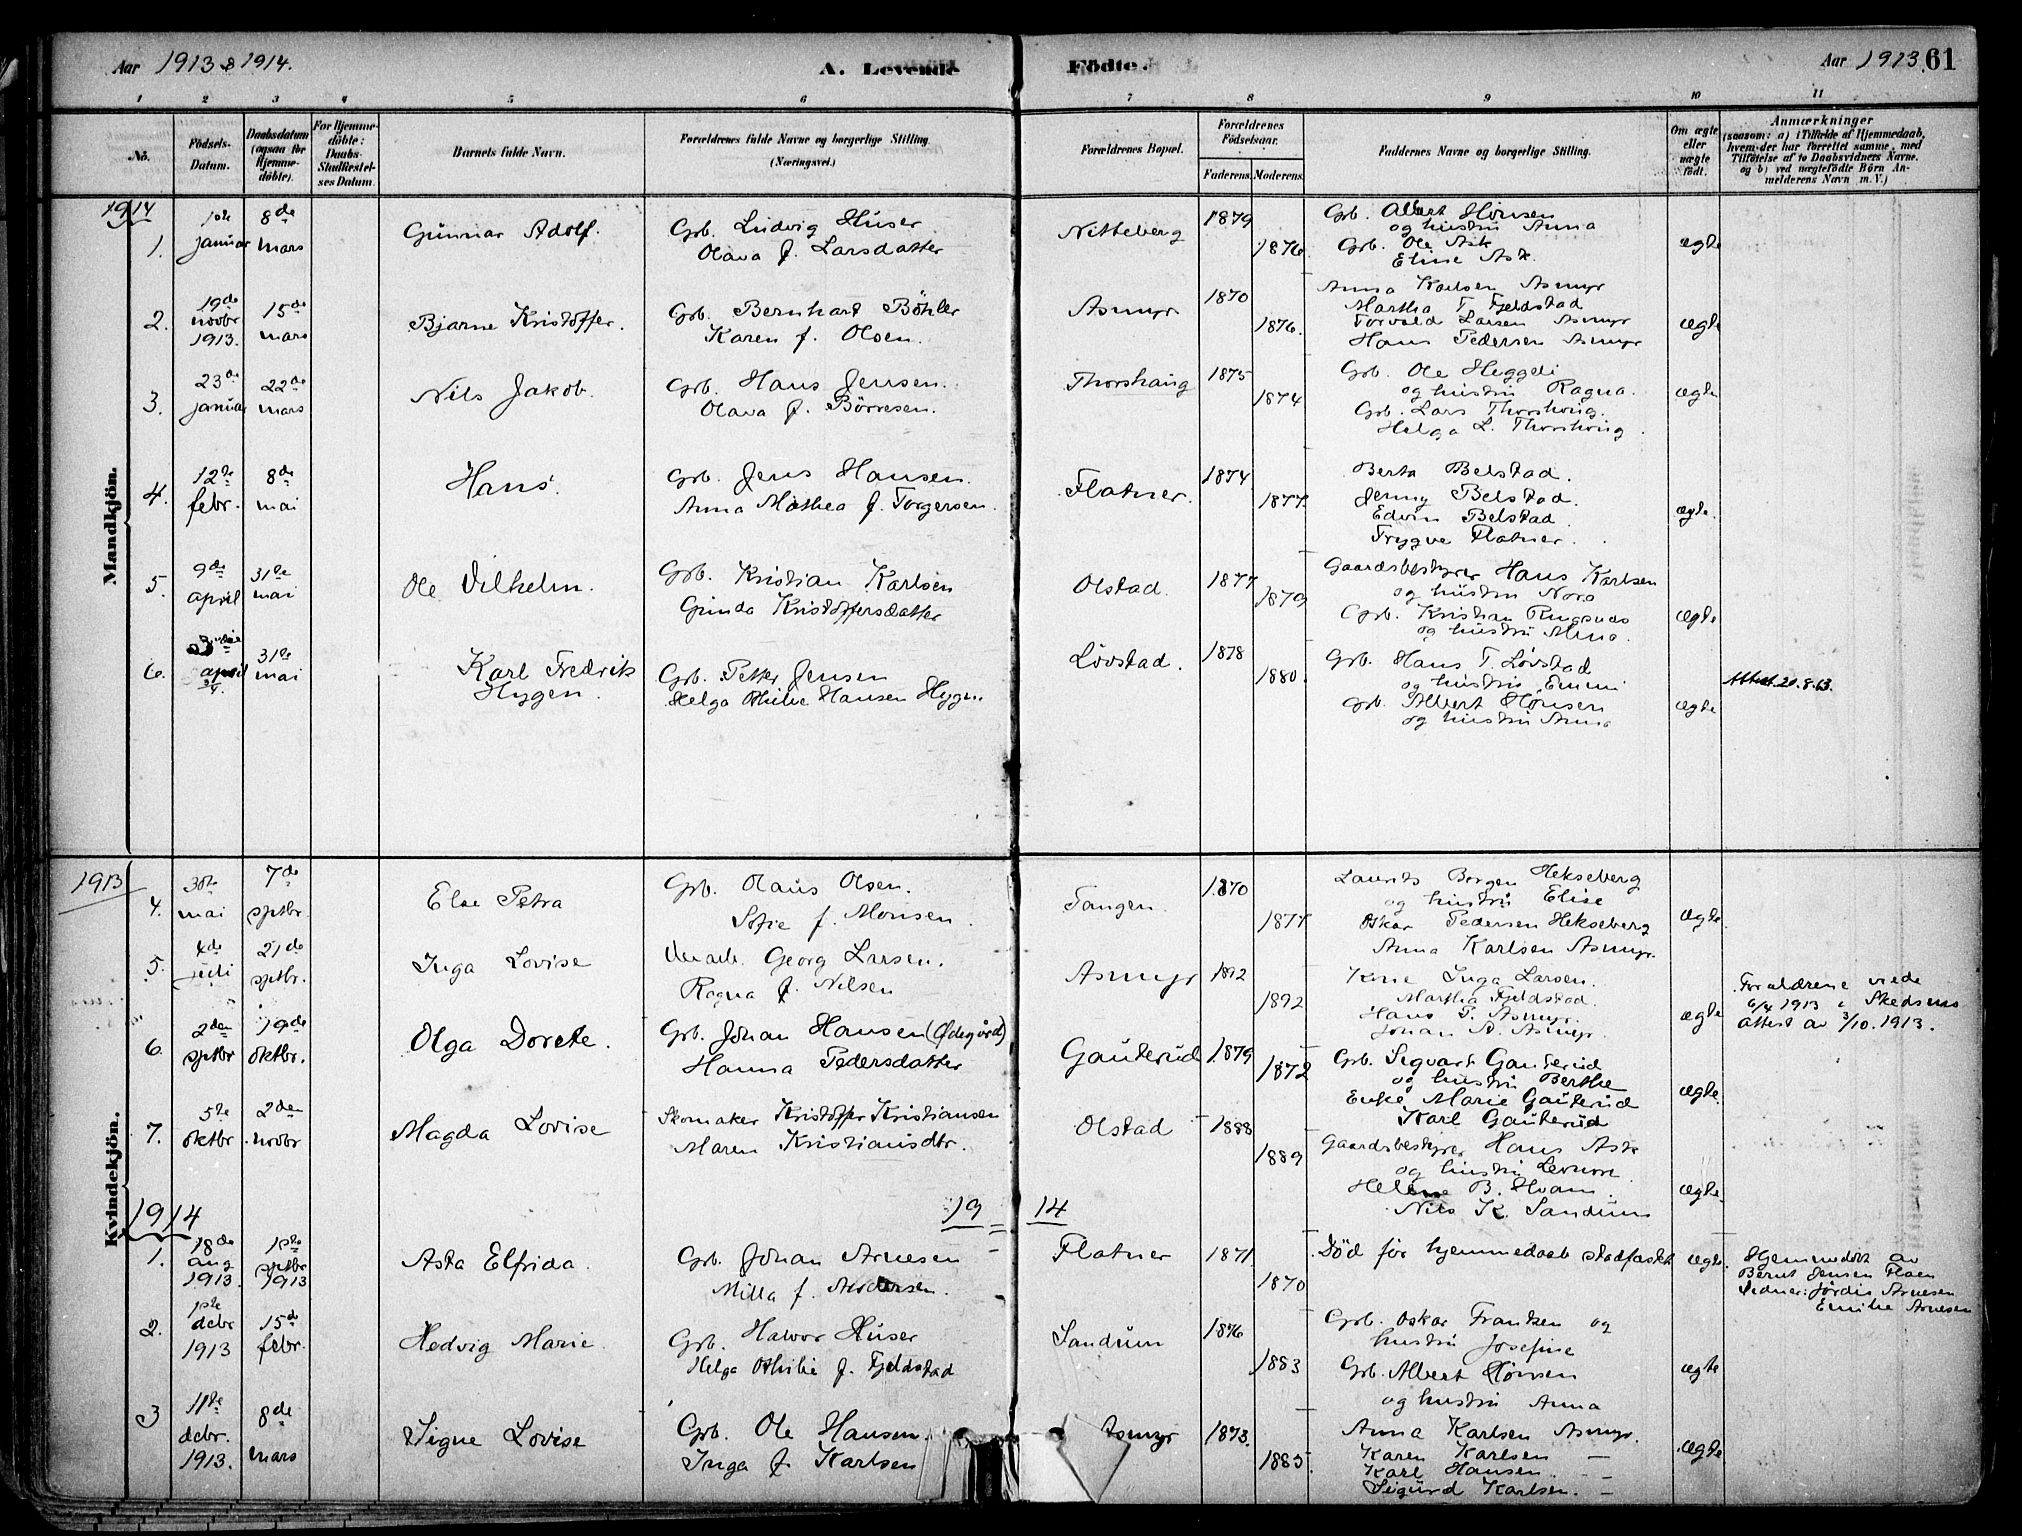 Aar 1913 & 1914.
A. Levende Födte.
Aar 1913. 61
1 2 3 4 5 6 7 8 9 10 11
No.
Födsels-Datum.
Daabsdatum (ogsaa for Hjemme-döbte).
For Hjemme-döbte: Daabs-Stadfæstel-ses Datum.
Barnets fulde Navn.
Forældrenes fulde Navne og borgerlige Stilling (Næringsvei).
Forældrenes Bopæl.
Forældrenes Födselsaar.
Faderens. Moderens.
Faddernes Navne og borgerlige Stilling.
Om ægte eller uægte födt.
Anmærkninger
(saasom: a) i Tilfælde af Hjemmedaab, hvem der har forrettet samme, med Tilföielse af to Daabsvidners Navne. og b) ved uægtefödte Börn An-melderens Navn m. V.)
Mandkjön.
1914
1. 1ste januar 8de mars Gunnar Adolf.
Grb. Ludvig Huser
Olava f. Larsdatter
Nitteberg 1879 1876.
Grb. Albert Hønsen
og hustru Anna
Grb. Ole Ask
Eline Ask
ægte
2. 19de novbr 1913. 15de mars Bjarne Kristoffer.
Grb. Bernhart Böhler
Karen f. Olsen.
Asmyr 1870 1876.
Anna Karlsen Asmyr
Martha T. Fjeldstad
Torvald Larsen Asmyr
Hans Pedersen Asmyr
ægte
3. 23de januar 22de mars Nils Jakob.
Grb. Hans Jensen.
Olava f. Börresen.
Thorshaug 1875 1874
Grb. Ole Heggeli
og hustru Ragna.
Grb. Lars Thorshoug.
Helga L. Thorshoug.
ægte
4. 12te febr. 8de mai Hans.
Grb. Jens Hansen.
Anna Mathea f. Torgersen.
Flatner. 1874 1877.
Berta Belstad.
Jenny Belstad.
Edvin Belstad.
Trygve Flatner.
ægte.
5. 9de april 31te mai Ole Vilhelm.
Grb. Kristian Karlsen
Gunda Kristoffersdatter
Olstad. 1877 1879
Gaardsbestyrer Hans Karlsen
og hustru Nora
Grb. Kristian Ringsnes
og hustru Anna.
ægte
6. april 31te mai Karl Fredrik
Hygen.
Grb. Petter Jensen
Helga Othilie Hansen Hygen.
Lövstad. 1878 1880.
Grb. Hans T. Lövstad
og hustru Emmi
Grb. Albert Hønsen
og hustru Anna
ægte
Attest 20.8.63.
Kvindekjön.
1913
4. 30te mai 7de septbr. Else Petra
Grb. Olaus Olsen.
Sofie f. Monsen.
Tangen. 1870 1877
Laurits Borgen Hekseberg
og hustru Elise
Oskar Pedersen Hekseberg
Anna Karlsen Asmyr.
ægte
5. 4de juli 21de septbr. Inga Lovise
Georg Larsen.
Ragna f. Nilsen
Asmyr 1892 1892
Inga Larsen.
Martha Fjeldstad.
Hans P. Asmyr.
Johan A. Asmyr.
ægte
Forældrene viede
6/4 1913 i Skedsmo
attest av 3/10. 1913.
6. 2den septbr 19de oktbr. Olga Dorete.
Grb. Johan Hansen (Ødegård)
Hanna Pedersdatter
Gauterud 1879 1872
Grb. Sigvart Gauterud
og hustru Berthe
Enke Marie Gauterud
Karl Gauterud
ægte.
7. 5te oktbr 2den novbr Magda Lovise
Skomaker Kristoffer Kristiansen
Maren Kristiansdtr.
Olstad 1888 1889
Gaardsbestyrer Hans Ask
og hustru Leonore
Helene B. Hvam.
Nils K. Sandum
ægte
1914 19 14
1. 18de aug 1913. 1ste septbr 1913 Asta Elfrida.
Grb. Johan Arnesen
Milla f. Andersen.
Flatner 1871 1870
Död før hjemmedaab stadfæstet
ægte.
Hjemmedöbt av
Bernt Jensen Floen
Vidner: Jördis Arnesen
Emilie Arnesen
2. 1ste debr 1913 15de febr. Hedvig Marie.
Grb. Halvor Huser
Helga Othilie f. Fjeldstad
Sandum 1876 1883
Grb. Oskar Frantzen og
hustru Josefine
Grb. Albert Hønsen
og hustru Anna
ægte
3 11te debr. 1913. 8de mars Signe Lovise
Grb. Ole Hansen.
Inga f. Karlsen
Asmyr 1873. 1885.
Anna Karlsen Asmyr.
Karen Karlsen —
Karl Hansen. —
Sigurd Karlsen. —
ægte